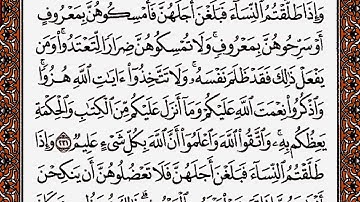 وَإِذَا طَلَّقْتُمُ ٱلنِّسَآءَ فَبَلَغْنَ أَجَلَهُنَّ فَأَمْسِكُوهُنَّ بِمَعْرُوفٍ
أَوْ سَرِّحُوهُنَّ بِمَعْرُوفٍ ۚ وَلَا تُمْسِكُوهُنَّ ضِرَارًا لِّتَعْتَدُوا۟ ۚ وَمَن
يَفْعَلْ ذَٰلِكَ فَقَدْ ظَلَمَ نَفْسَهُۥ ۚ وَلَا تَتَّخِذُوٓا۟ ءَايَٰتِ ٱللَّهِ هُزُوًا ۚ
وَٱذْكُرُوا۟ نِعْمَتَ ٱللَّهِ عَلَيْكُمْ وَمَآ أَنزَلَ عَلَيْكُم مِّنَ ٱلْكِتَٰبِ وَٱلْحِكْمَةِ
يَعِظُكُم بِهِۦ ۚ وَٱتَّقُوا۟ ٱللَّهَ وَٱعْلَمُوٓا۟ أَنَّ ٱللَّهَ بِكُلِّ شَىْءٍ عَلِيمٌ ٢٣١ وَإِذَا
طَلَّقْتُمُ ٱلنِّسَآءَ فَبَلَغْنَ أَجَلَهُنَّ فَلَا تَعْضُلُوهُنَّ أَن يَنكِحْنَ